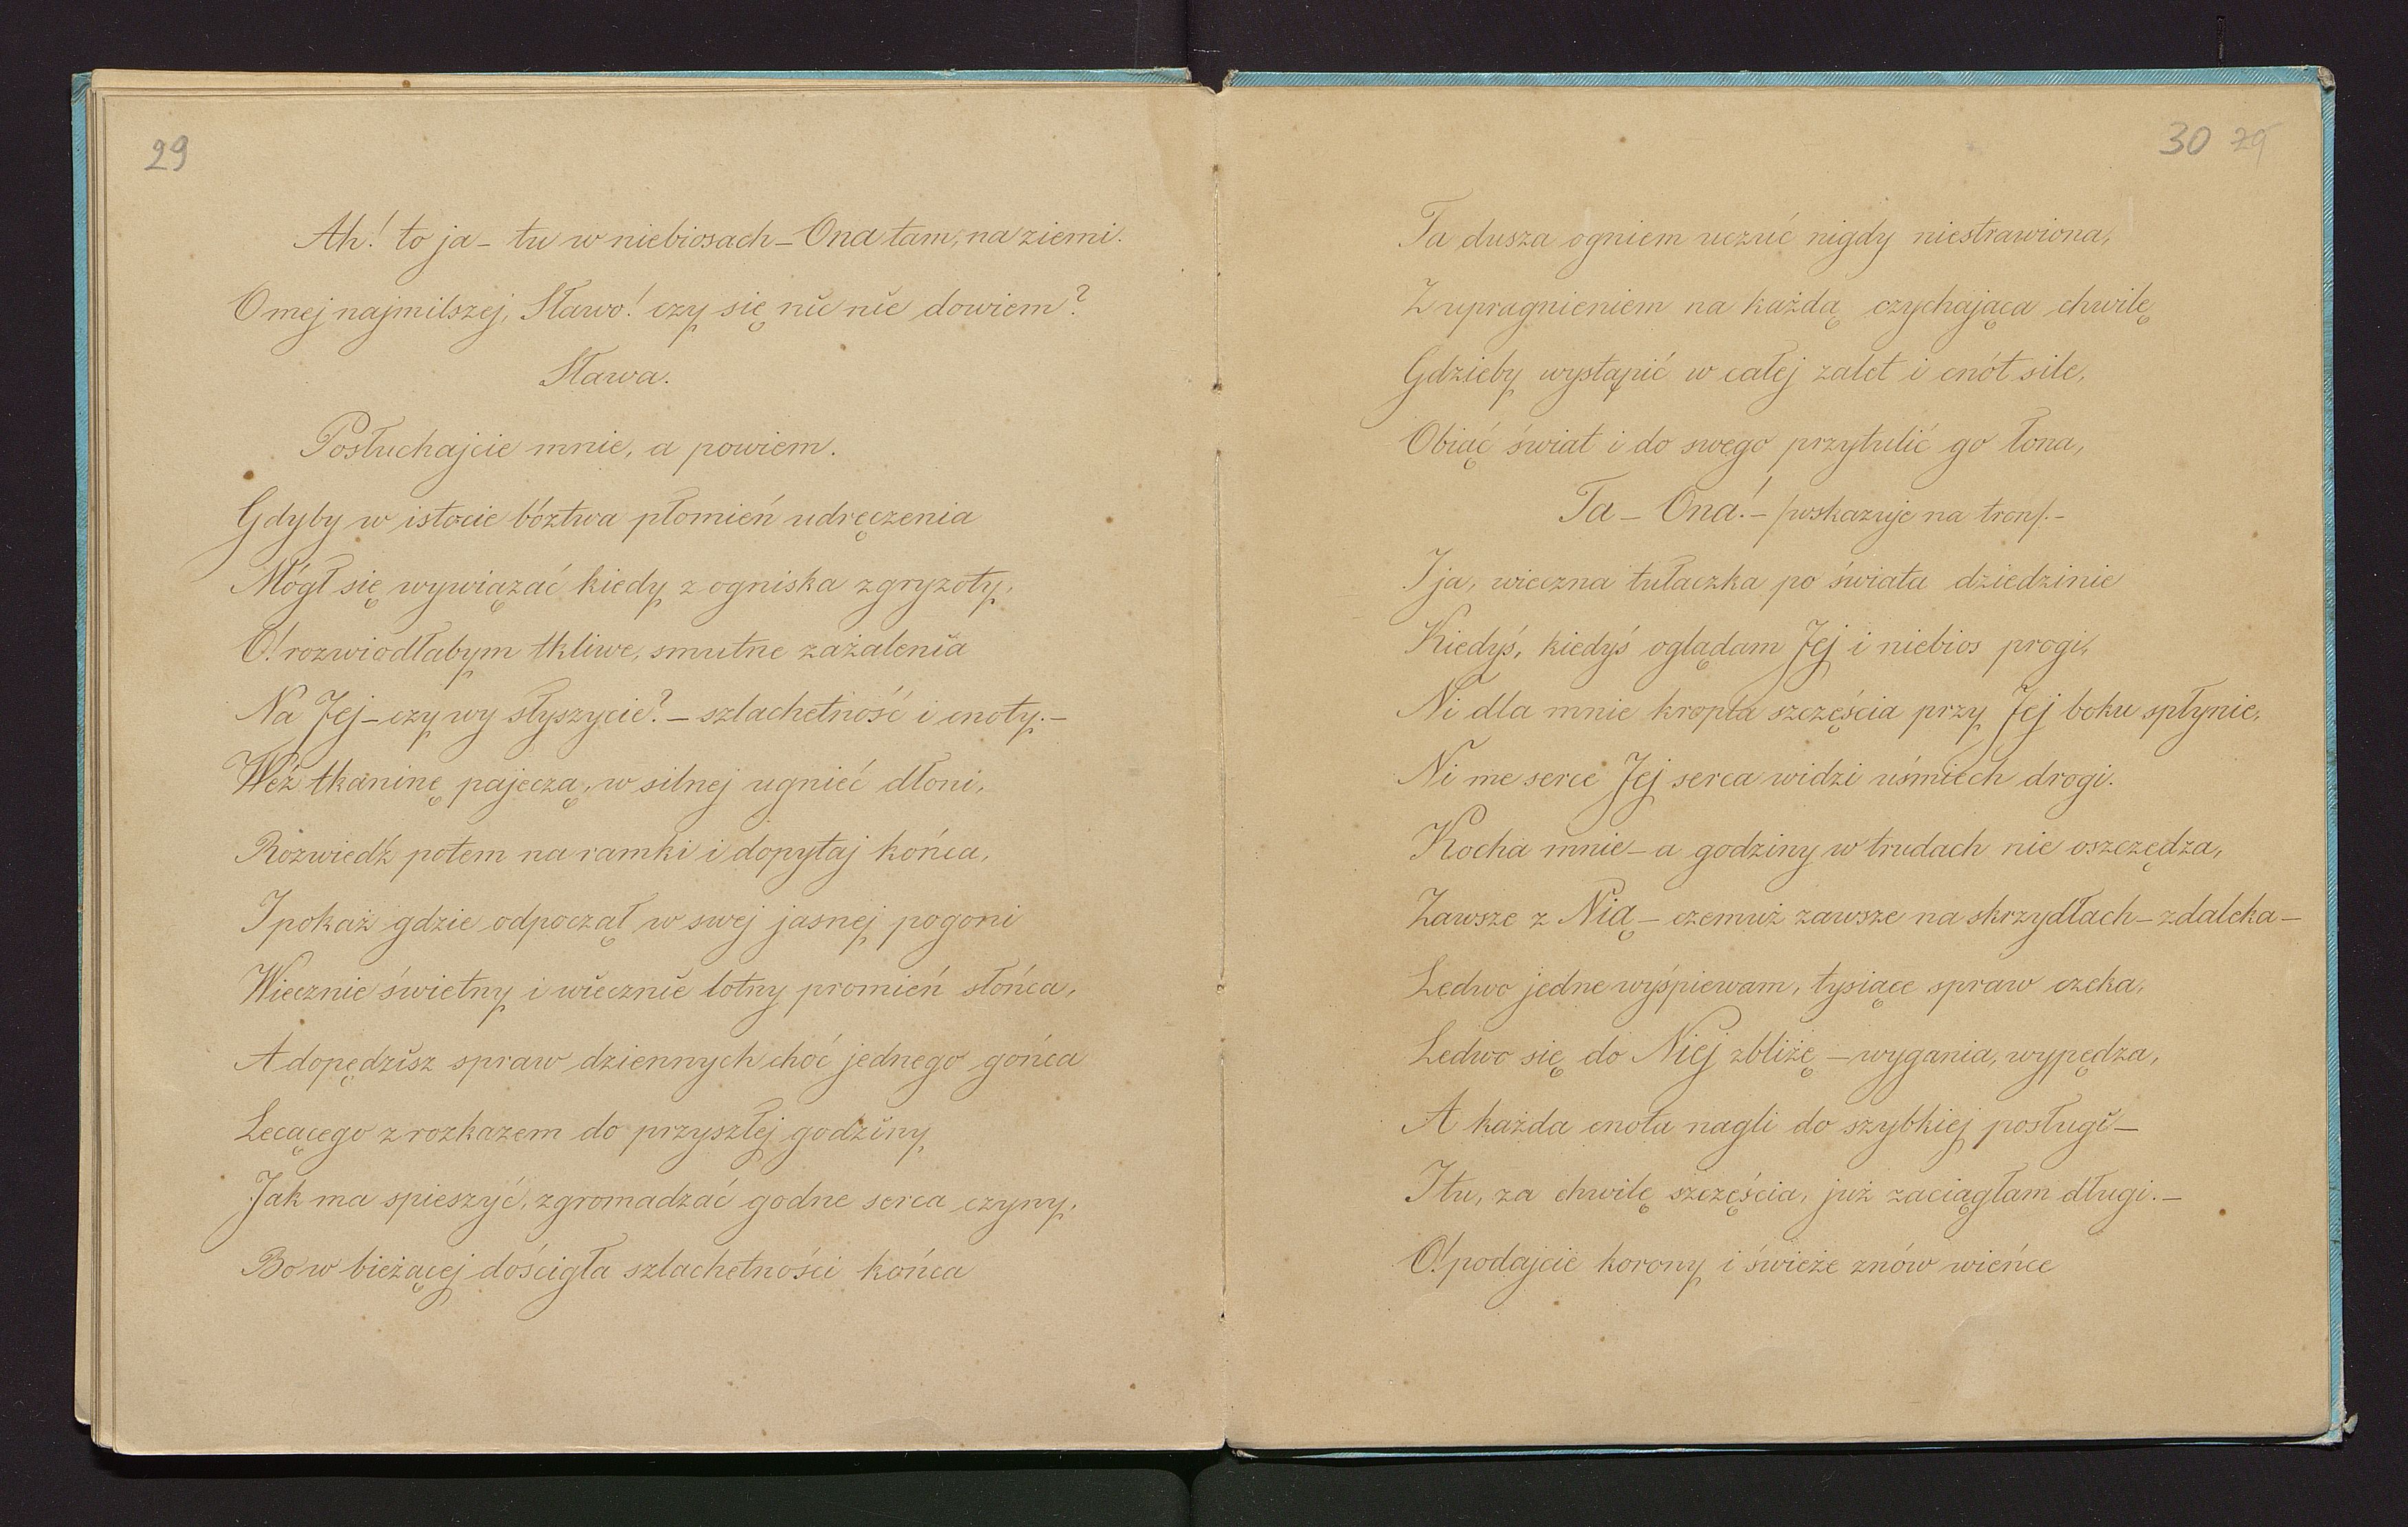 29
Ah! to ja – tu w niebiosach – Ona tam, na ziemi.
O mej najmilszej, Sławo! czy się nic nie dowiem?
Sława.
Posłuchajcie mnie, a powiem.
Gdyby w istocie bóztwa płomień udręczenia
Mógł się wywiązać kiedy z ogniska zgryzoty,
O! rozwiodłabym tkliwe, smutne zażalenia
Na Jej – czy wy słyszycie? – szlachetność i cnoty. –
Weź tkaninę pajeczą, w silnej ugnieć dłoni,
Rozwiedź potem na ramki i dopytaj końca,
I pokaż gdzie odpoczął w swej jasnej pogoni
Wiecznie świetny i wiecznie lotny promień słońca,
A dopędzisz spraw dziennych choć jednego gońca
Lecącego z rozkazem do przyszłej godziny
Jak ma spieszyć, zgromadzać godne serca czyny,
Bo w bieżącej dościgła szlachetności końca
30 29
Ta dusza ogniem uczuć nigdy niestrawiona,
Z upragnieniem na każdą czychająca chwilę
Gdzieby wystąpić w całej zalet i cnót sile,
Obiąć świat i do swego przytulić go łona,
Ta – Ona! – /wskazuje na tron/. –
I ja, wieczna tułaczka po świata dziedzinie
Kiedyś, kiedyś oglądam Jej i niebios progi,
Ni dla mnie kropla szczęścia przy Jej boku spłynie,
Ni me serce Jej serca widzi uśmiech drogi.
Kocha mnie – a godziny w trudach nie oszczędza,
Zawsze z Nią – czemuż zawsze na skrzydłach – zdaleka –
Ledwo jedne wyśpiewam, tysiące spraw czeka,
Ledwo się do Niej zbliżę – wygania, wypędza,
A każda cnota nagli do szybkiej posługi –
I tu, za chwilę szczęścia, już zaciągłam długi. –
O! podajcie korony i świeże znów wieńce